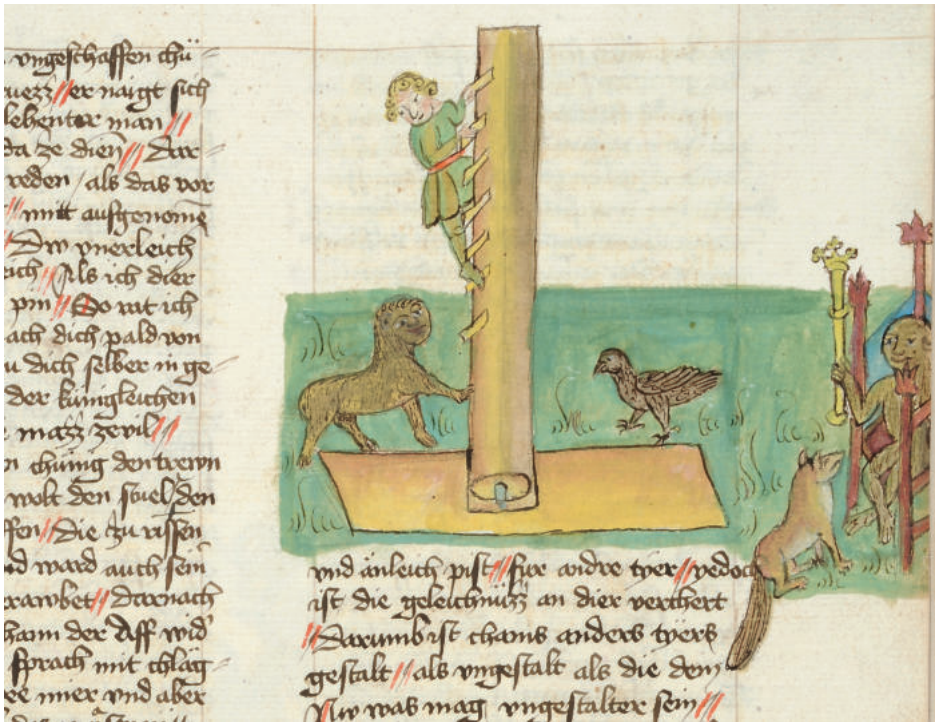 vngeschaffen chü
uezz // er naigt sich
lebentor man //
da ze dien // Dar
reden / als das vor
// mitt aufgenome
Dw vnerleich
eich // Als ich dier
pin // So rat ich
ach dich pald von
u dich selber in ge
der künigleichen
mazz zevil //
n chünig den trewn
wolt den spiel den
ffen // die zu rissen
nd ward auch sein
rawbet // Darnach
hann der Aff wid
sprach mit chläg
ee mier vnd aber
vnd änleich pist // für andre tyer // yedoch
ist die geleichnüzz an dier verchert
// Darumb ist chains anders tyers
gestalt // als vngestalt als die dein
Nw was mag vngestalter sein //